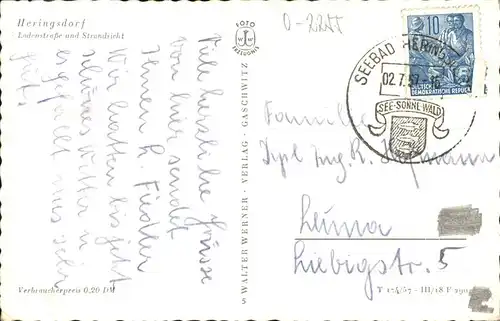 Heringsdorf
Ladenstraße und Strandsicht
Viele herzliche Grüsse
von hier sendet
Ihnen H. Fiedler
Wir hatten bis jetzt
schönes Wetter u
es gefällt uns sehr
gut.
Verbraucherpreis 0,20 DM
FOTO
WALTER WERNER · VERLAG · GASCHWITZ
5
0-2255
10
DEUTSCHE
DEMOKRATISCHE REPUBLIK
SEEBAD HERINGSDORF
02.7.57
SEE-SONNE-WALD
Familie
Dipl. Ing. R. Hofmann
Leuna
Liebigstr. 5
T 174/57 - III/18 F